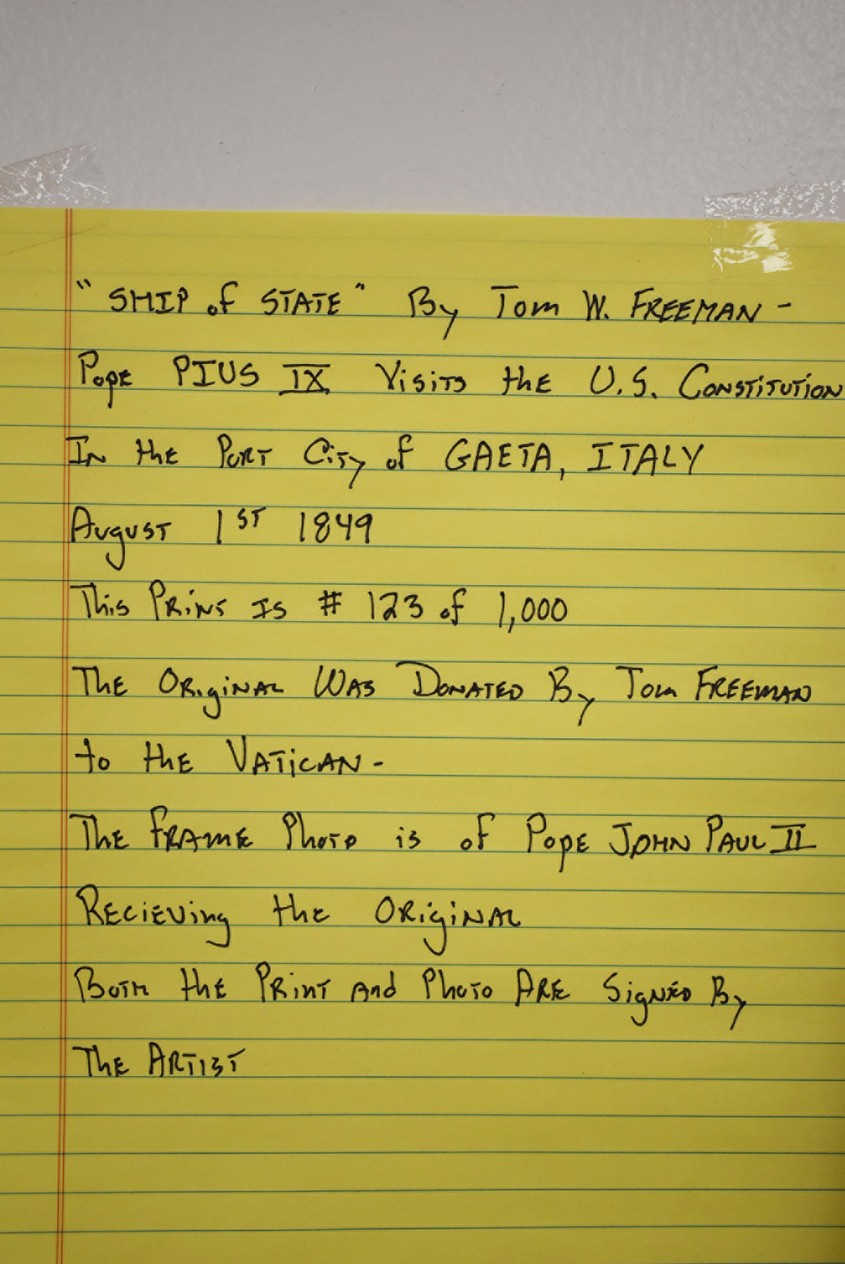 "SHIP of STATE" By Tom W. FREEMAN -
Pope PIUS IX Visits the U.S. CONSTITUTION
IN the PORT City of GAETA, ITALY
AUGUST 1ST 1849
This PRINT IS # 123 of 1,000
THE ORiGiNAL WAS DONATED By Tom FREEMAN
to the VATiCAN -
THE FRAME Photo is of Pope JOHN PAUL II
RECiEViNg the ORiGiNAL
BOTH the PRiNT ANd PhoTo ARE SigNED By
THE ARTIST